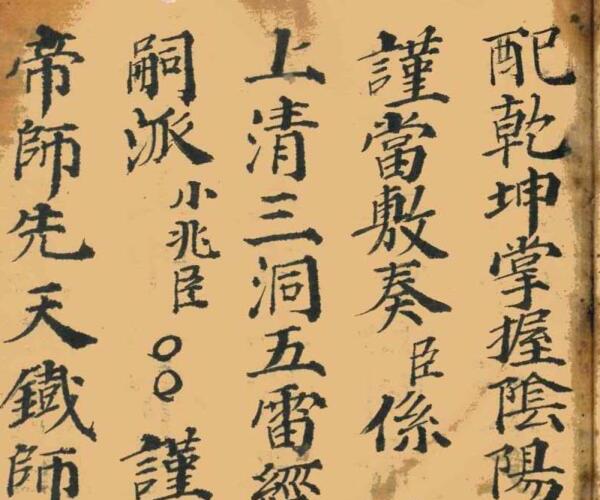 配乾坤掌握陰陽
謹當敷奏臣係
上清三洞五雷經
嗣派小兆臣○○謹
帝師先天鐵師